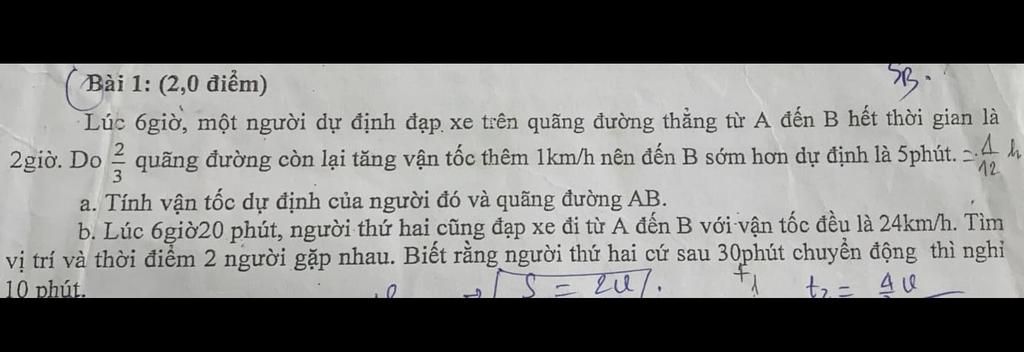 Bài 1: (2,0 điểm)
5B.
Lúc 6giờ, một người dự định đạp xe trên quãng đường thẳng từ A đến B hết thời gian là
2giờ. Do 2/3 quãng đường còn lại tăng vận tốc thêm 1km/h nên đến B sớm hơn dự định là 5phút. = 1/12 h
a. Tính vận tốc dự định của người đó và quãng đường AB.
b. Lúc 6giờ20 phút, người thứ hai cũng đạp xe đi từ A đến B với vận tốc đều là 24km/h. Tìm
vị trí và thời điểm 2 người gặp nhau. Biết rằng người thứ hai cứ sau 30phút chuyển động thì nghỉ
10 phút.
S = 2v
t₂ = 4v